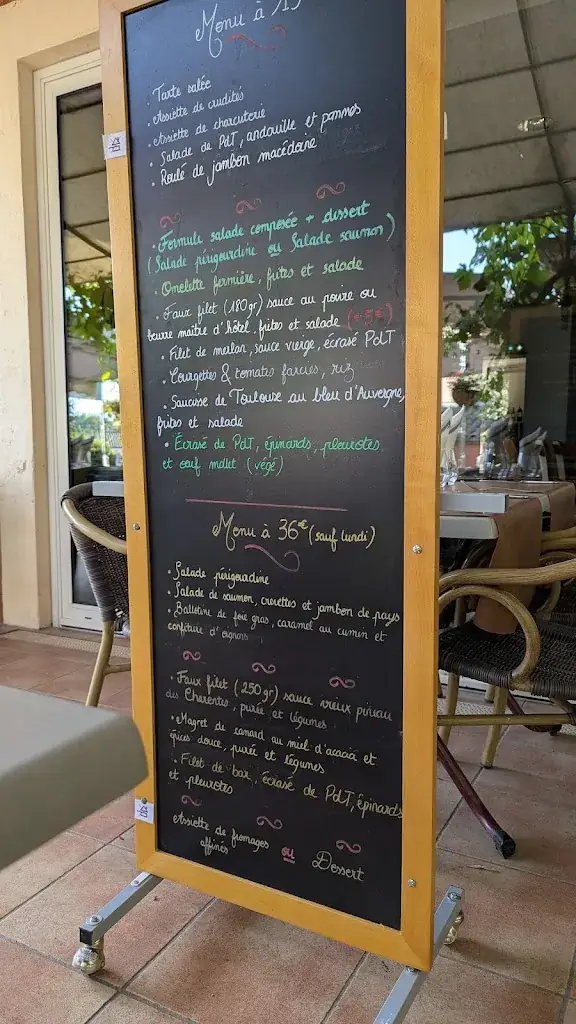 Menu à
• Tarte salée
• Assiette de crudités
• Assiette de charcuterie
• Salade de PdT, andouille et pommes
• Roulé de jambon macédoine
• Formule salade composée + dessert
(Salade périgourdine ou Salade saumon)
• Omelette fermière, frites et salade
• Faux filet (180gr) sauce au poivre ou
beurre maître d'hôtel, frites et salade (+5€)
• Filet de merlan, sauce vierge, écrasé PdT
• Courgettes & tomates farcies, riz
• Saucisse de Toulouse au bleu d'Auvergne,
frites et salade
• Écrasé de PdT, épinards, pleurotes
et oeuf mollet (végé)
Menu à 36€ (sauf lundi)
• Salade périgourdine
• Salade de saumon, crevettes et jambon de pays
• Ballotine de foie gras, caramel au cumin et
confiture d'oignons
• Faux filet (250gr) sauce vieux pineau
des Charentes, purée et légumes
• Magret de canard au miel d'acacia et
épices douce, purée et légumes
• Filet de bar, écrasé de PdT, épinards
et pleurotes
Assiette de fromages ou Dessert
affinés